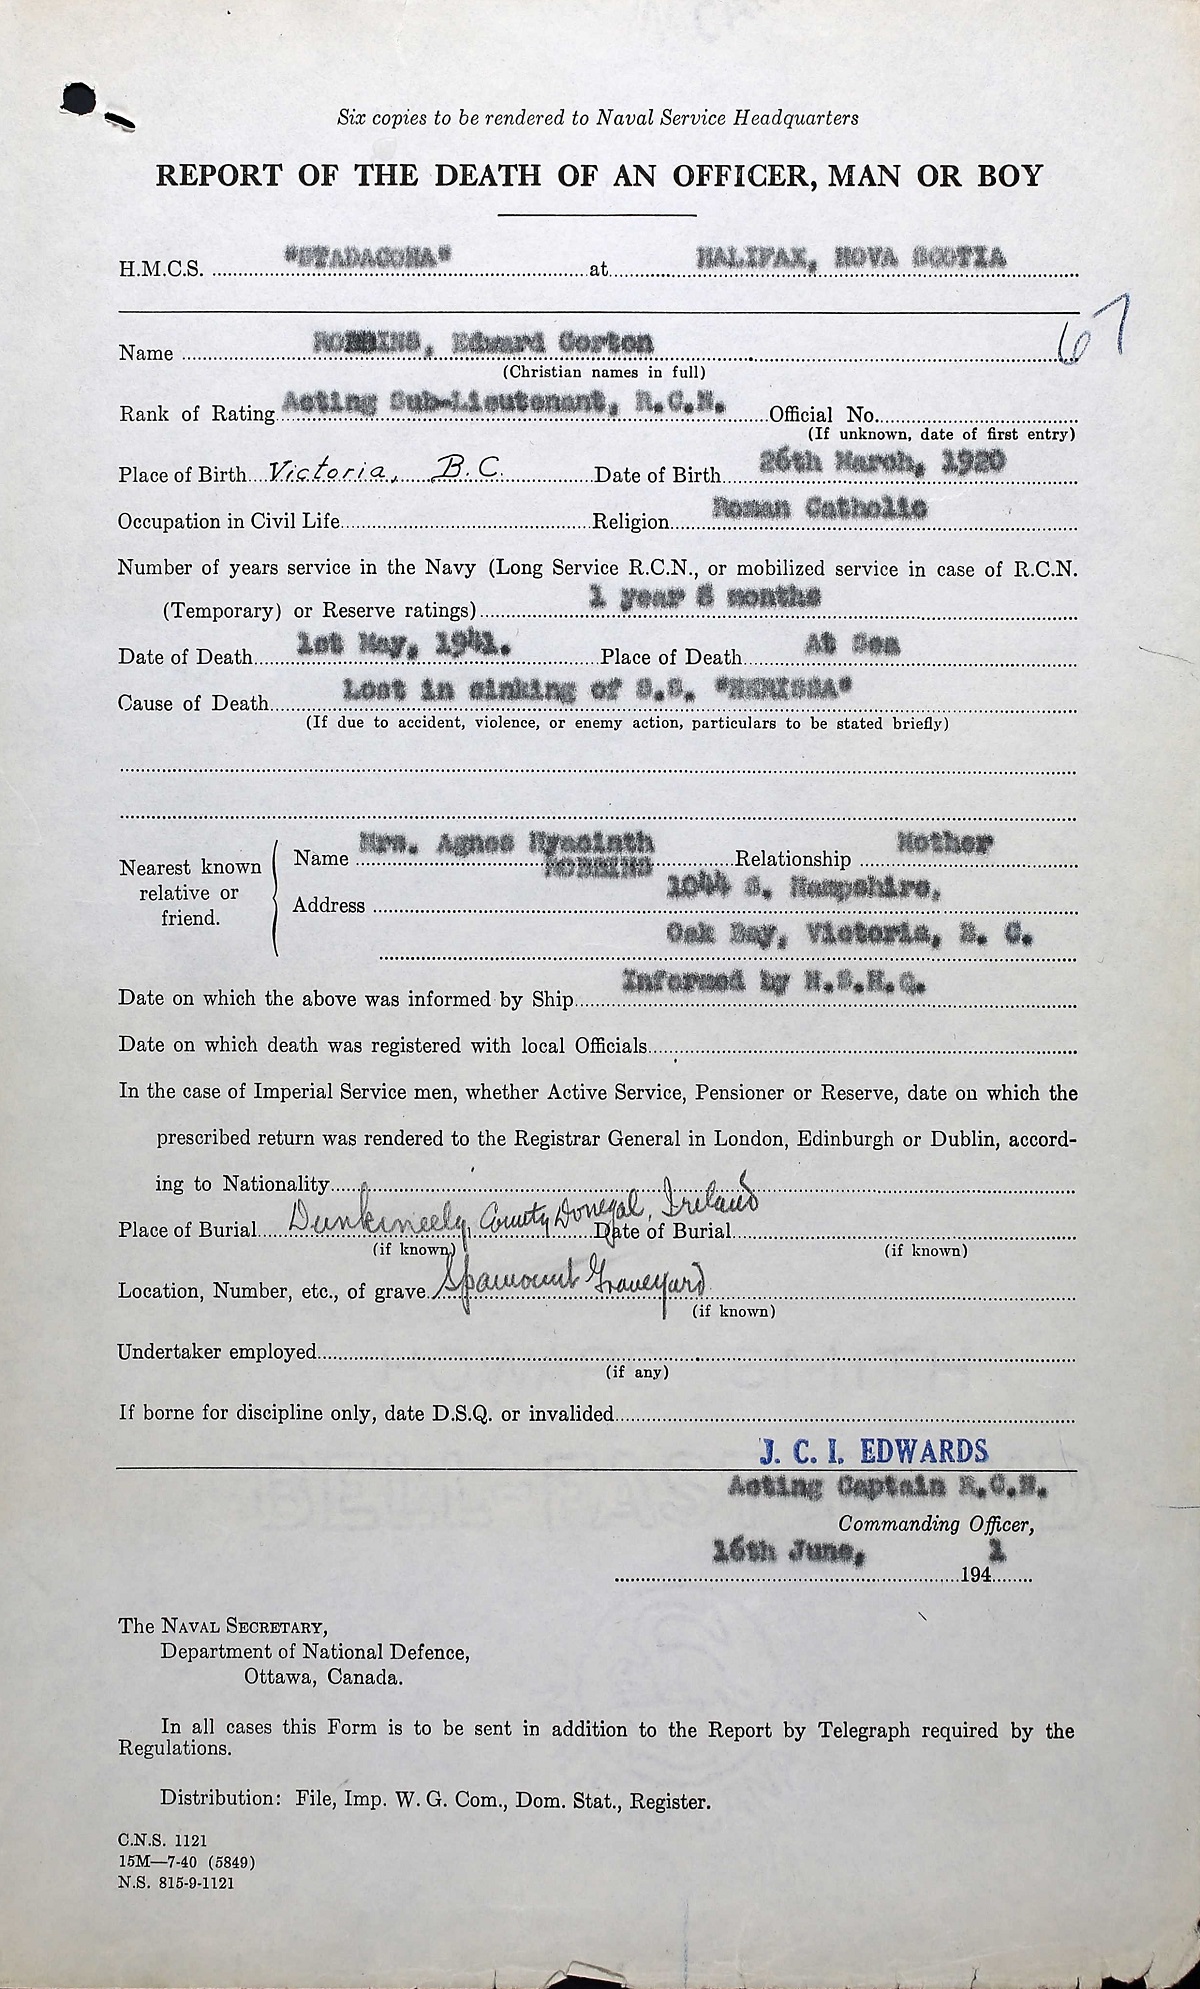 Six copies to be rendered to Naval Service Headquarters
REPORT OF THE DEATH OF AN OFFICER, MAN OR BOY
H.M.C.S. "STADACONA" at HALIFAX, NOVA SCOTIA
67
Name ROBBINS, Edward Gorton
(Christian names in full)
Rank of Rating Acting Sub-Lieutenant, R.C.N. Official No.
(If unknown, date of first entry)
Place of Birth Victoria, B.C. Date of Birth 26th March, 1920
Occupation in Civil Life Religion Roman Catholic
Number of years service in the Navy (Long Service R.C.N., or mobilized service in case of R.C.N.
(Temporary) or Reserve ratings) 1 year 8 months
Date of Death 1st May, 1941. Place of Death At Sea
Cause of Death Lost in sinking of S.S. "NERISSA"
(If due to accident, violence, or enemy action, particulars to be stated briefly)
Nearest known relative or friend.
Name Mrs. Agnes Hyacinth ROBBINS Relationship Mother
Address 1044 S. Hampshire,
Oak Bay, Victoria, B. C.
Date on which the above was informed by Ship Informed by N.S.H.Q.
Date on which death was registered with local Officials
In the case of Imperial Service men, whether Active Service, Pensioner or Reserve, date on which the
prescribed return was rendered to the Registrar General in London, Edinburgh or Dublin, accord-
ing to Nationality
Place of Burial Dunkineely, County Donegal, Ireland Date of Burial
(if known) (if known)
Location, Number, etc., of grave Spamount Graveyard
(if known)
Undertaker employed
(if any)
If borne for discipline only, date D.S.Q. or invalided
J. C. I. EDWARDS
Acting Captain R.C.N.
Commanding Officer,
16th June, 1941
The NAVAL SECRETARY,
Department of National Defence,
Ottawa, Canada.
In all cases this Form is to be sent in addition to the Report by Telegraph required by the
Regulations.
Distribution: File, Imp. W. G. Com., Dom. Stat., Register.
C.N.S. 1121
15M—7-40 (5849)
N.S. 815-9-1121